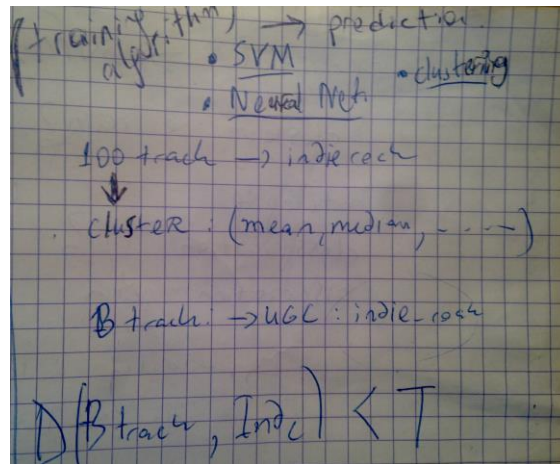 (training algorithm) → prediction.
• SVM • clustering
• Neural Net
100 track → indie rock
cluster : (mean, median, - - - -)
B track : → UGC : indie-rock
D(B track, Indc) < T